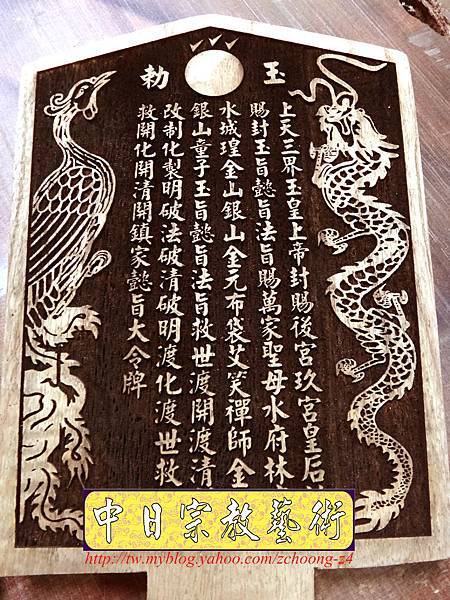 玉勅
上天三界玉皇上帝封賜後宮玖宮皇后
賜封玉旨懿旨法旨賜萬家聖母水府林
水城瑝金山銀山金元布袋艾笑禪師金
銀山童子玉旨懿旨法旨救世渡開渡清
改制化製明破法破清破明渡化渡世救
救開化開清開鎮家懿旨大令牌
中日宗教藝術
http://tw.myblog.yahoo.com/zchoong-z4